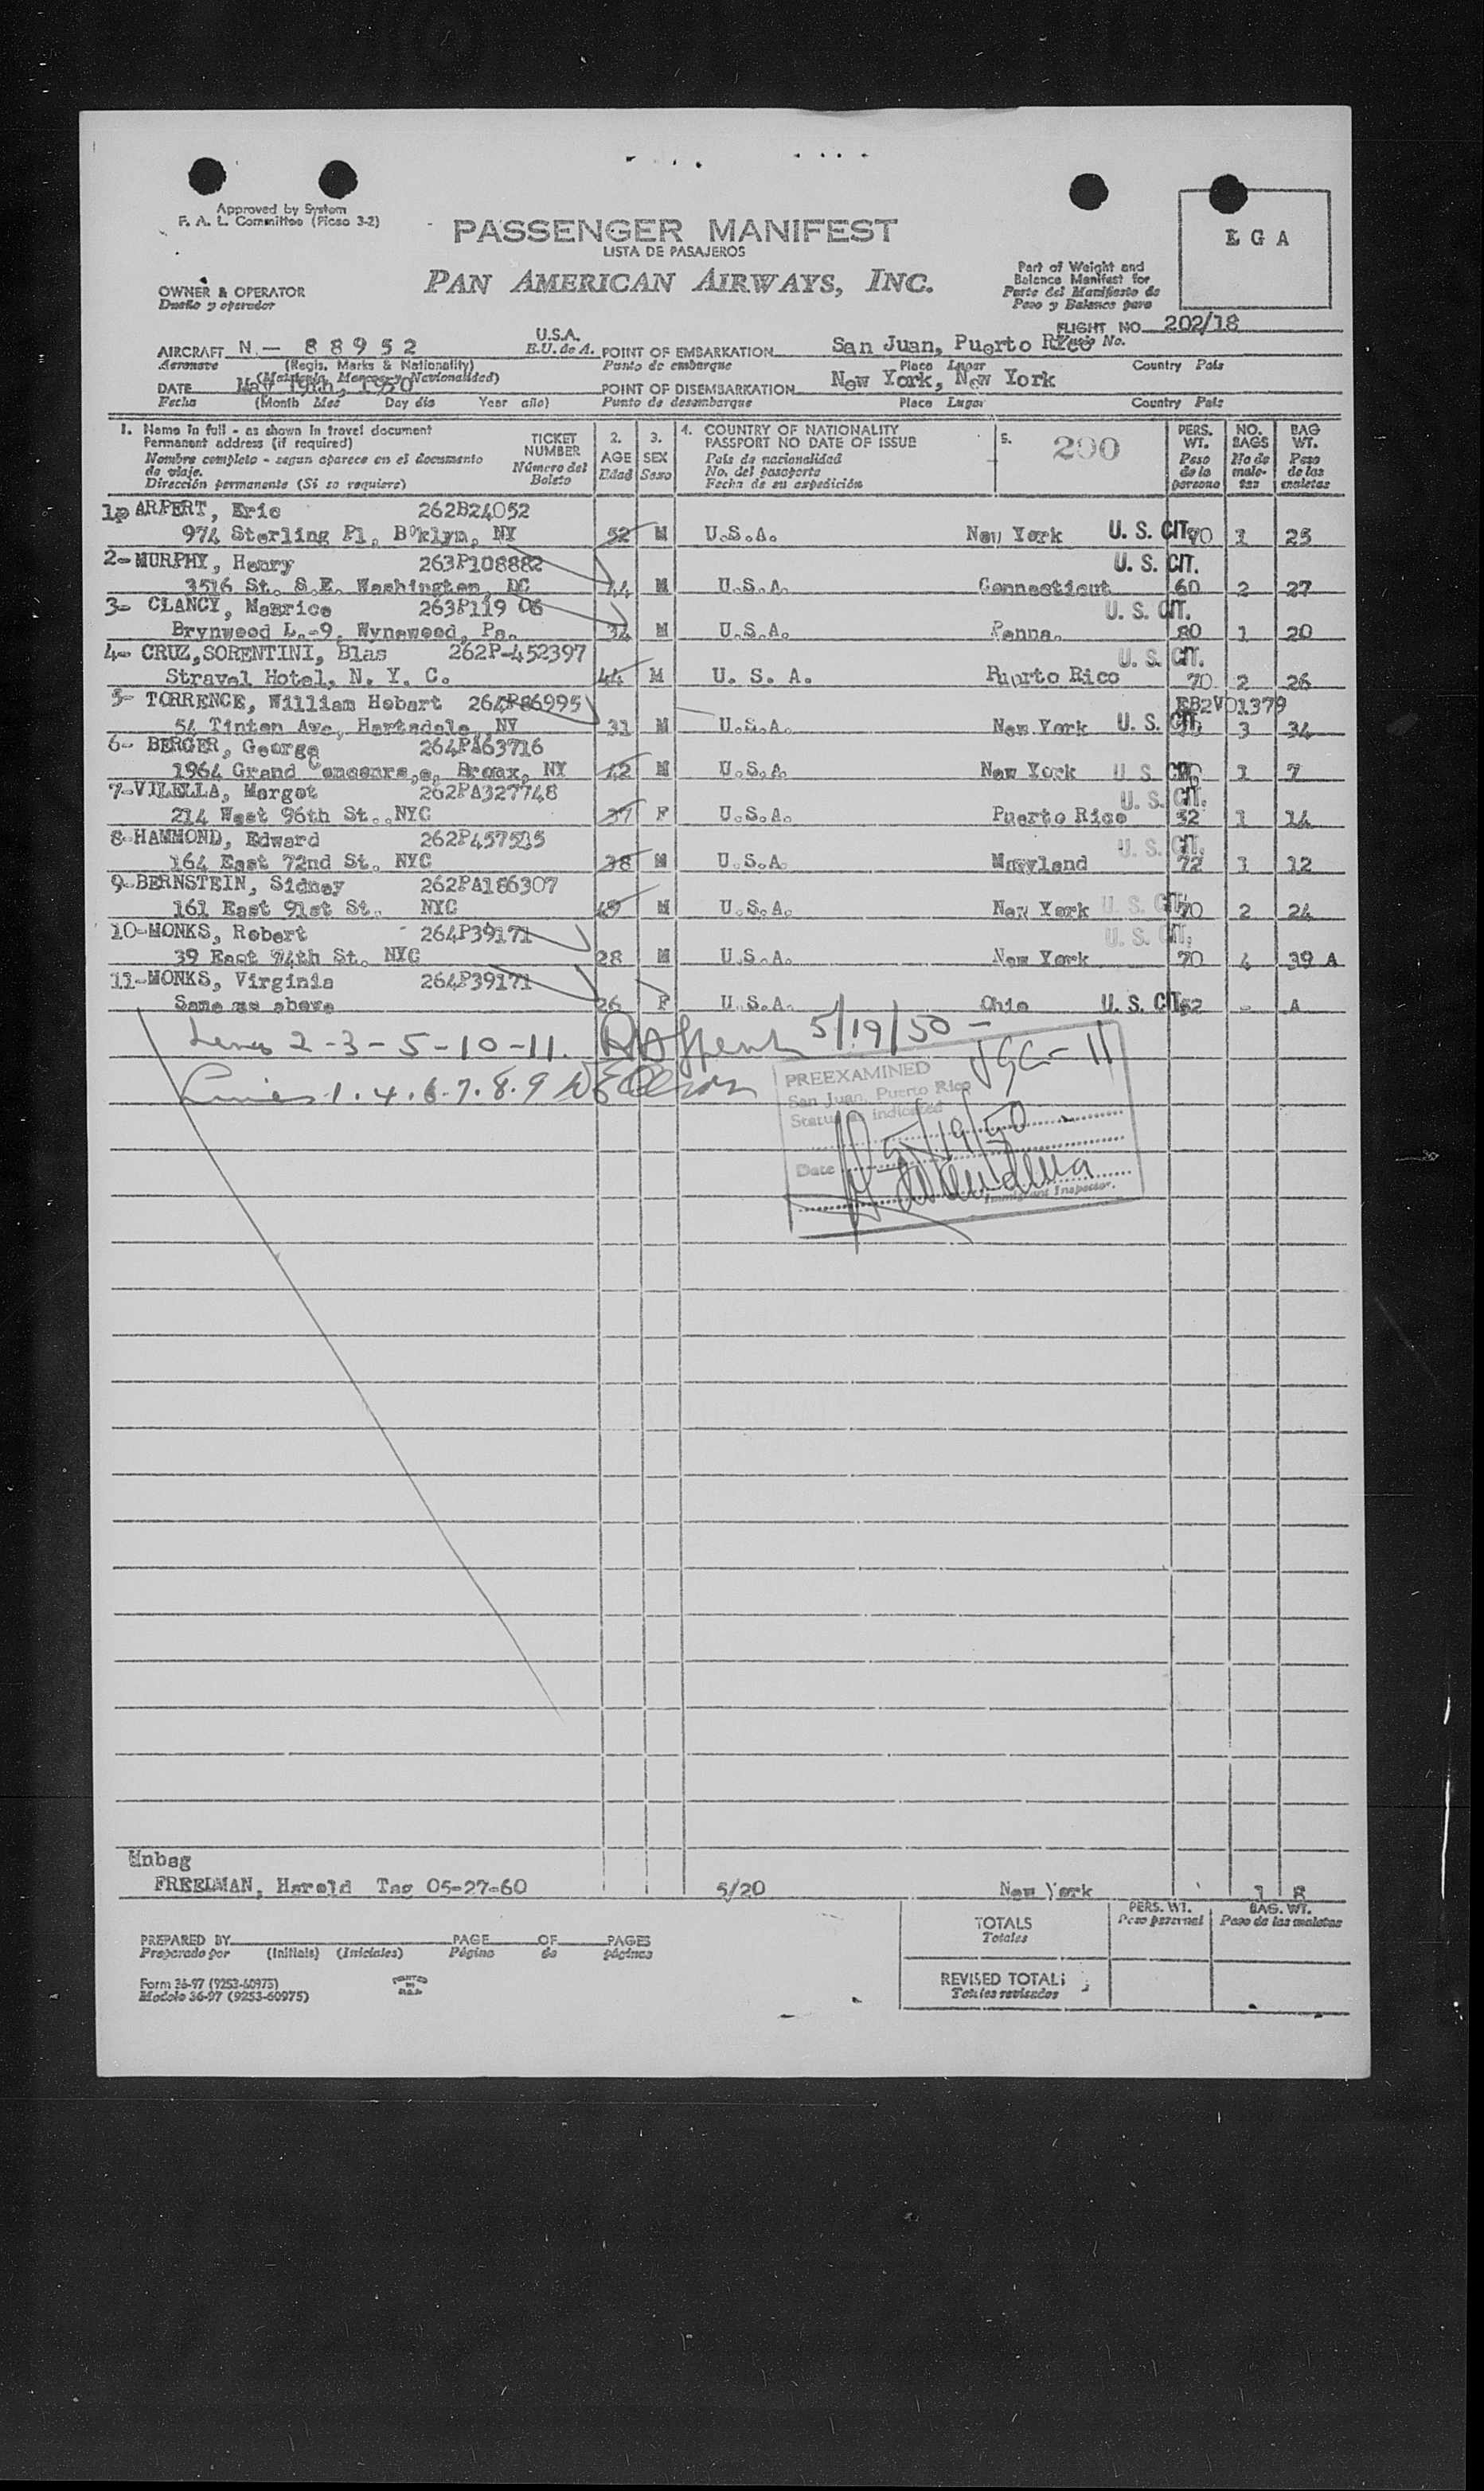 Approved by System
F. A. L. Committee (Picao 3-2)
PASSENGER MANIFEST
LISTA DE PASAJEROS
PAN AMERICAN AIRWAYS, INC.
L G A
Part of Weight and
Balance Manifest for
Parte del Manifiesto de
Peso y Balance para
OWNER & OPERATOR
Dueño y operador
FLIGHT NO. 202/18
Vuelo No.
AIRCRAFT N - 88952 U.S.A.
Aeronave (Regis. Marks & Nationality) E.U. de A.
(Matrícula, Marcas y Nacionalidad)
POINT OF EMBARKATION San Juan, Puerto Rico
Punto de embarque Place Lugar Country País
DATE May 19th, 1950
Fecha (Month Mes Day día Year año)
POINT OF DISEMBARKATION New York, New York
Punto de desembarque Place Lugar Country País
1. Name in full - as shown in travel document
Permanent address (if required)
Nombre completo - segun aparece en el documento
de viaje.
Dirección permanente (Si se requiere)
TICKET
NUMBER
Número del
Boleto
2.
AGE
Edad
3.
SEX
Sexo
4. COUNTRY OF NATIONALITY
PASSPORT NO DATE OF ISSUE
País de nacionalidad
No. del pasaporte
Fecha de su expedición
5. 290
PERS.
WT.
Peso
de la
persona
NO.
BAGS
No de
male-
tas
BAG
WT.
Peso
de las
maletas
1- ARPERT, Eric 262B24052
974 Sterling Pl, B'klyn, NY 52 M U.S.A. New York U. S. CIT. 70 1 25
2- MURPHY, Henry 263P108882 U. S. CIT.
3516 St. S.E. Washington, DC 44 M U.S.A. Connecticut 60 2 27
3- CLANCY, Maurice 263P119 06 U. S. CIT.
Brynwood L.-9, Wynewood, Pa. 34 M U.S.A. Penna. 80 1 20
4- CRUZ,SORENTINI, Blas 262P-452397 U. S. CIT.
Stravel Hotel, N. Y. C. 44 M U. S. A. Puerto Rico 70 2 26
5- TORRENCE, William Hobart 264P86995 EB2V01379
54 Tinten Ave, Hartsdale, NY 31 M U.S.A. New York U. S. CIT. 3 34
6- BERGER, George 264PA63716
1964 Grand Concourse, Bronx, NY 42 M U.S.A. New York U. S. CIT. 1 7
7-VILELLA, Margot 262PA327748 U. S. CIT.
214 West 96th St., NYC 37 F U.S.A. Puerto Rico 52 1 14
8-HAMMOND, Edward 262P457535 U. S. CIT.
164 East 72nd St., NYC 38 M U.S.A. Maryland 72 1 12
9-BERNSTEIN, Sidney 262PA186307
161 East 91st St. NYC 49 M U.S.A. New York U. S. CIT. 70 2 24
10-MONKS, Robert 264P39171 U. S. CIT.
39 East 74th St. NYC 28 M U.S.A. New York 70 4 39 A
11-MONKS, Virginia 264P39171
Same as above 26 F U.S.A. Ohio U. S. CIT. 52 - A
Lines 2-3-5-10-11. 5/19/50 -
Lines 1.4.6.7.8.9
PREEXAMINED
San Juan, Puerto Rico
Status as indicated
Date 5/19/50
Immigrant Inspector.
Unbag
FREEDMAN, Harold Tag 05-27-60 5/20 New York 1 8
PREPARED BY PAGE OF PAGES
Preparado por (Initials) (Iniciales) Página de páginas
TOTALS
Totales
PERS. WT.
Peso personal
BAG. WT.
Peso de las maletas
REVISED TOTAL:
Totales revisados
Form 36-97 (9253-60975)
Modelo 36-97 (9253-60975)
PRINTED
IN
U.S.A.